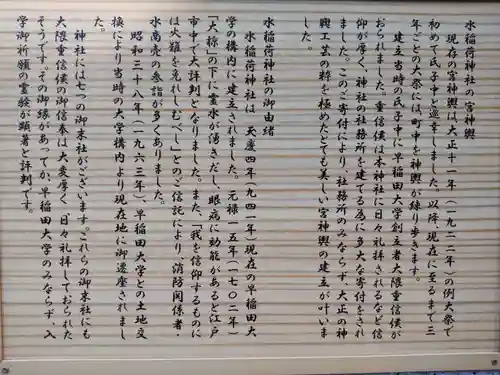 水稲荷神社の宮神輿
現在の宮神輿は、大正十一年(一九二二年)の例大祭で
初めて氏子中と巡幸しました。以降、現在に至るまで三
年ごとの大祭には町中を神輿が練り歩きます。
建立当時の氏子中に早稲田大学創立者大隈重信侯が
おられました。重信侯は本神社に日々礼拝されるなど信
仰が厚く、神社の社務所を建てる為に多大な寄付をされ
ました。このご寄付により、社務所のみならず、大正の神
輿工芸の粋を極めたとても美しい宮神輿の建立が叶いま
した。
水稲荷神社の御由緒
水稲荷神社は、天慶四年(九四一年)現在の早稲田大
学の構内に建立されました。元禄一五年(一七〇二年)
「大椋」の下に霊水が湧きだし、眼病に効能があると江戸
市中で大評判となりました。また、「我を信仰するものに
は火難を免れしむべし」とのご信託により、消防関係者・
水商売の参詣が多くありました。
昭和三十八年(一九六三年)、早稲田大学との土地交
換により当時の大学構内より現在地に御遷座されまし
た。
神社には七つの御末社がございます。これらの御末社にも
大隈重信侯の御信奉は大変厚く、日々礼拝しておられた
そうです。その御縁があってか、早稲田大学のみならず、入
学御祈願の霊験が顕著と評判です。